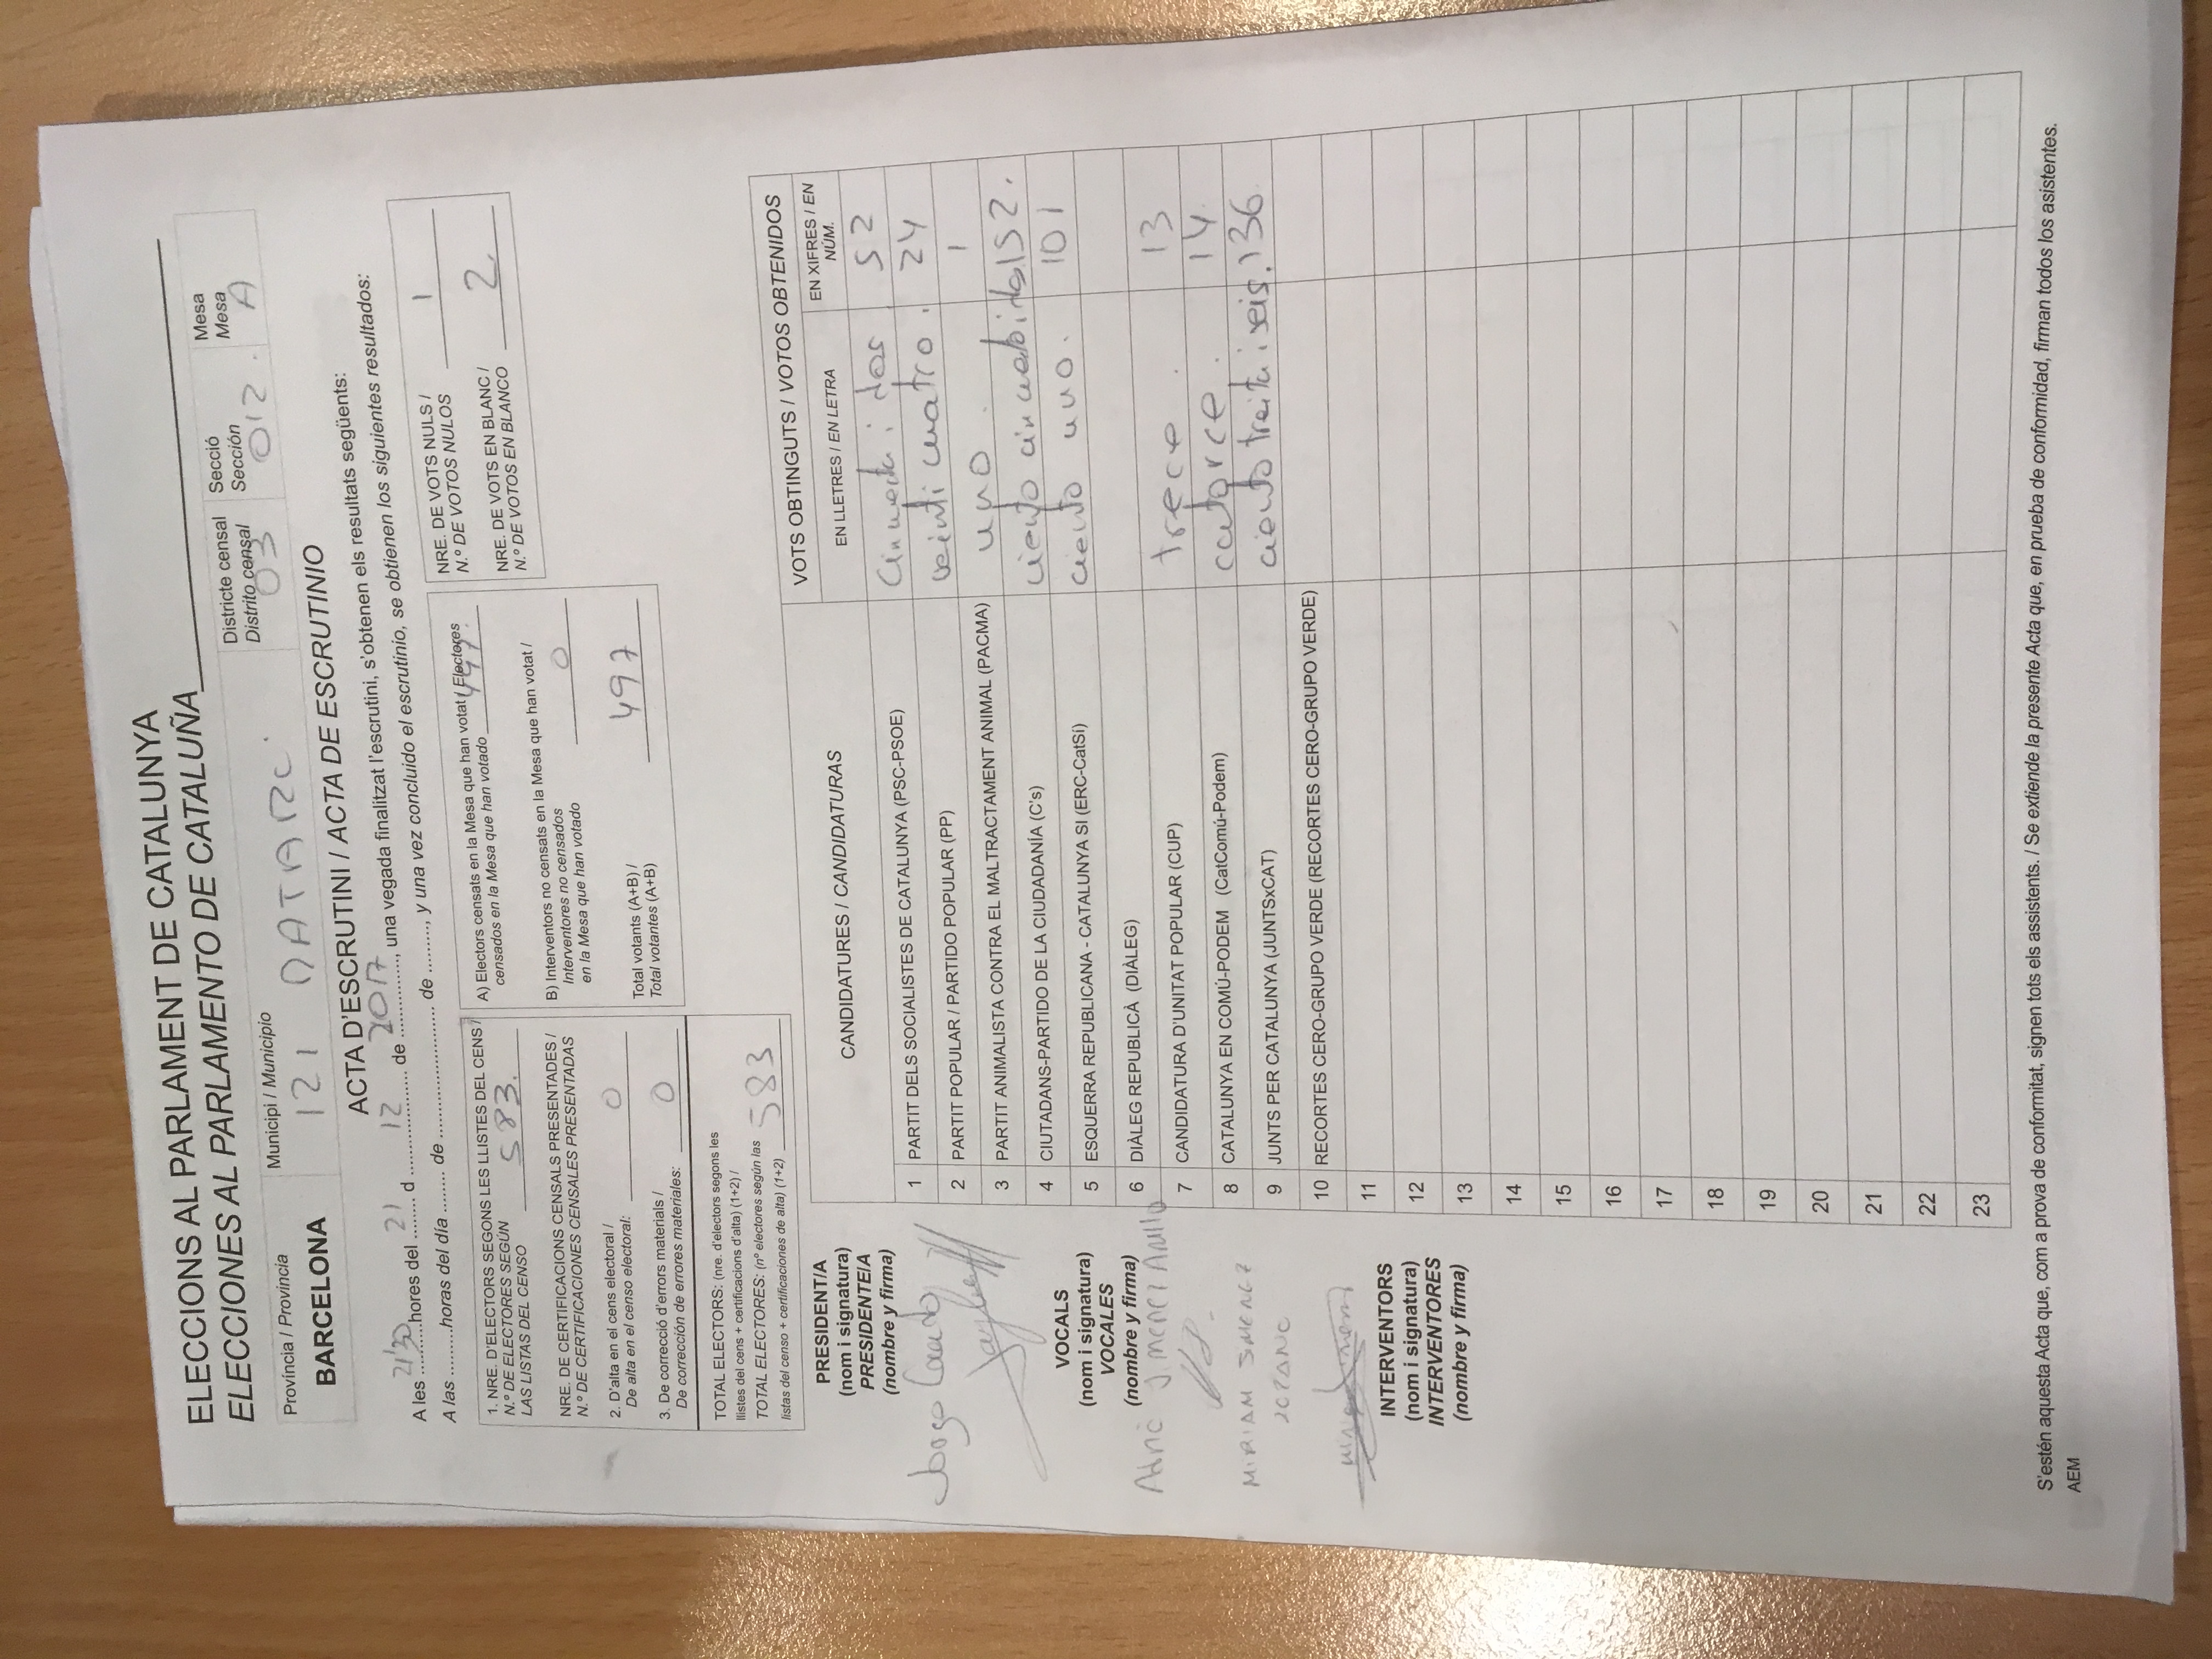 ELECCIONS AL PARLAMENT DE CATALUNYA
ELECCIONES AL PARLAMENTO DE CATALUÑA
Província / Provincia
BARCELONA
Municipi / Municipio
121 MATARO.
Districte censal
Distrito censal
03
Secció
Sección
012.
Mesa
Mesa
A
ACTA D'ESCRUTINI / ACTA DE ESCRUTINIO
A les 21'30 hores del 21 d 12 de 2017, una vegada finalitzat l'escrutini, s'obtenen els resultats següents:
A las ..........horas del día ......... de ......................... de ........., y una vez concluido el escrutinio, se obtienen los siguientes resultados:
1. NRE. D'ELECTORS SEGONS LES LLISTES DEL CENS /
N.º DE ELECTORES SEGÚN
LAS LISTAS DEL CENSO 583.
NRE. DE CERTIFICACIONS CENSALS PRESENTADES /
N.º DE CERTIFICACIONES CENSALES PRESENTADAS
2. D'alta en el cens electoral /
De alta en el censo electoral: 0
3. De correcció d'errors materials /
De corrección de errores materiales: 0
TOTAL ELECTORS: (nre. d'electors segons les
llistes del cens + certificacions d'alta) (1+2) /
TOTAL ELECTORES: (nº electores según las
listas del censo + certificaciones de alta) (1+2) 583
A) Electors censats en la Mesa que han votat / Electores
censados en la Mesa que han votado 497.
B) Interventors no censats en la Mesa que han votat /
Interventores no censados
en la Mesa que han votado 0
Total votants (A+B) /
Total votantes (A+B) 497
NRE. DE VOTS NULS /
N.º DE VOTOS NULOS 1
NRE. DE VOTS EN BLANC /
N.º DE VOTOS EN BLANCO 2.
PRESIDENT/A
(nom i signatura)
PRESIDENTE/A
(nombre y firma)
Jorge
VOCALS
(nom i signatura)
VOCALES
(nombre y firma)
Adrià Jimenez
MIRIAM JIMENEZ
INTERVENTORS
(nom i signatura)
INTERVENTORES
(nombre y firma)
CANDIDATURES / CANDIDATURAS
VOTS OBTINGUTS / VOTOS OBTENIDOS
EN LLETRES / EN LETRA
EN XIFRES / EN
NÚM.
1 PARTIT DELS SOCIALISTES DE CATALUNYA (PSC-PSOE) Cincuenta i dos 52
2 PARTIT POPULAR / PARTIDO POPULAR (PP) veinti cuatro. 24
3 PARTIT ANIMALISTA CONTRA EL MALTRACTAMENT ANIMAL (PACMA) uno. 1
4 CIUTADANS-PARTIDO DE LA CIUDADANÍA (C's) ciento cincuenta i dos 152.
5 ESQUERRA REPUBLICANA - CATALUNYA SI (ERC-CatSí) ciento uno. 101
6 DIÀLEG REPUBLICÀ (DIÀLEG)
7 CANDIDATURA D'UNITAT POPULAR (CUP) trece. 13
8 CATALUNYA EN COMÚ-PODEM (CatComú-Podem) catorce. 14.
9 JUNTS PER CATALUNYA (JUNTSxCAT) ciento treita i seis. 136.
10 RECORTES CERO-GRUPO VERDE (RECORTES CERO-GRUPO VERDE)
11
12
13
14
15
16
17
18
19
20
21
22
23
S'estén aquesta Acta que, com a prova de conformitat, signen tots els assistents. / Se extiende la presente Acta que, en prueba de conformidad, firman todos los asistentes.
AEM